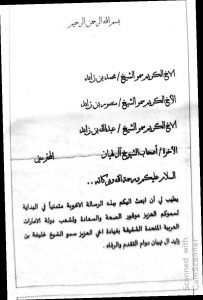 بسم الله الرحمن الرحيم
الأخ الكريم سمو الشيخ / محمد بن زايد
الأخ الكريم سمو الشيخ / منصور بن زايد
الأخ الكريم سمو الشيخ / عبدالله بن زايد
الأخوة / أصحاب الشيوخ آل نهيان المحترمين
السلام عليكم ورحمة الله وبركاته ...
يطيب لي أن ابعث اليكم بهذه الرسالة الاخوية متمنياً في البداية
لسموكم العزيز موفور الصحة والسعادة ولشعب دولة الامارات
العربية المتحدة الشقيقة بقيادة اخي العزيز سمو الشيخ خليفة بن
زايد ال نهيان دوام التقدم والرقاء .
Scanned with
CamScanner